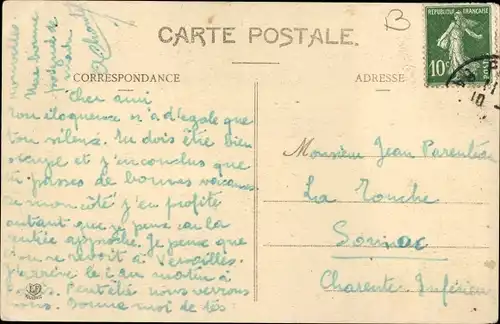 CARTE POSTALE.
CORRESPONDANCE
ADRESSE
B
RÉPUBLIQUE FRANÇAISE
10
Cher ami
Ton éloquence n'a d'égale que
ton silence. Tu dois être bien
occupé et j'en conclus que
tu passes de bonnes vacances
de mon côté j'en profite
autant que je peux car la
rentrée approche. Je pense que
l'on se revoit à Versailles.
J'arrive le 1 au matin à
Paris. Peut être nous verrons
nous. Donne moi de tes
nouvelles.
Une bonne
poignée de
main
Monsieur Jean Parenteau
La Touche
Sonnac
Charente Inférieure